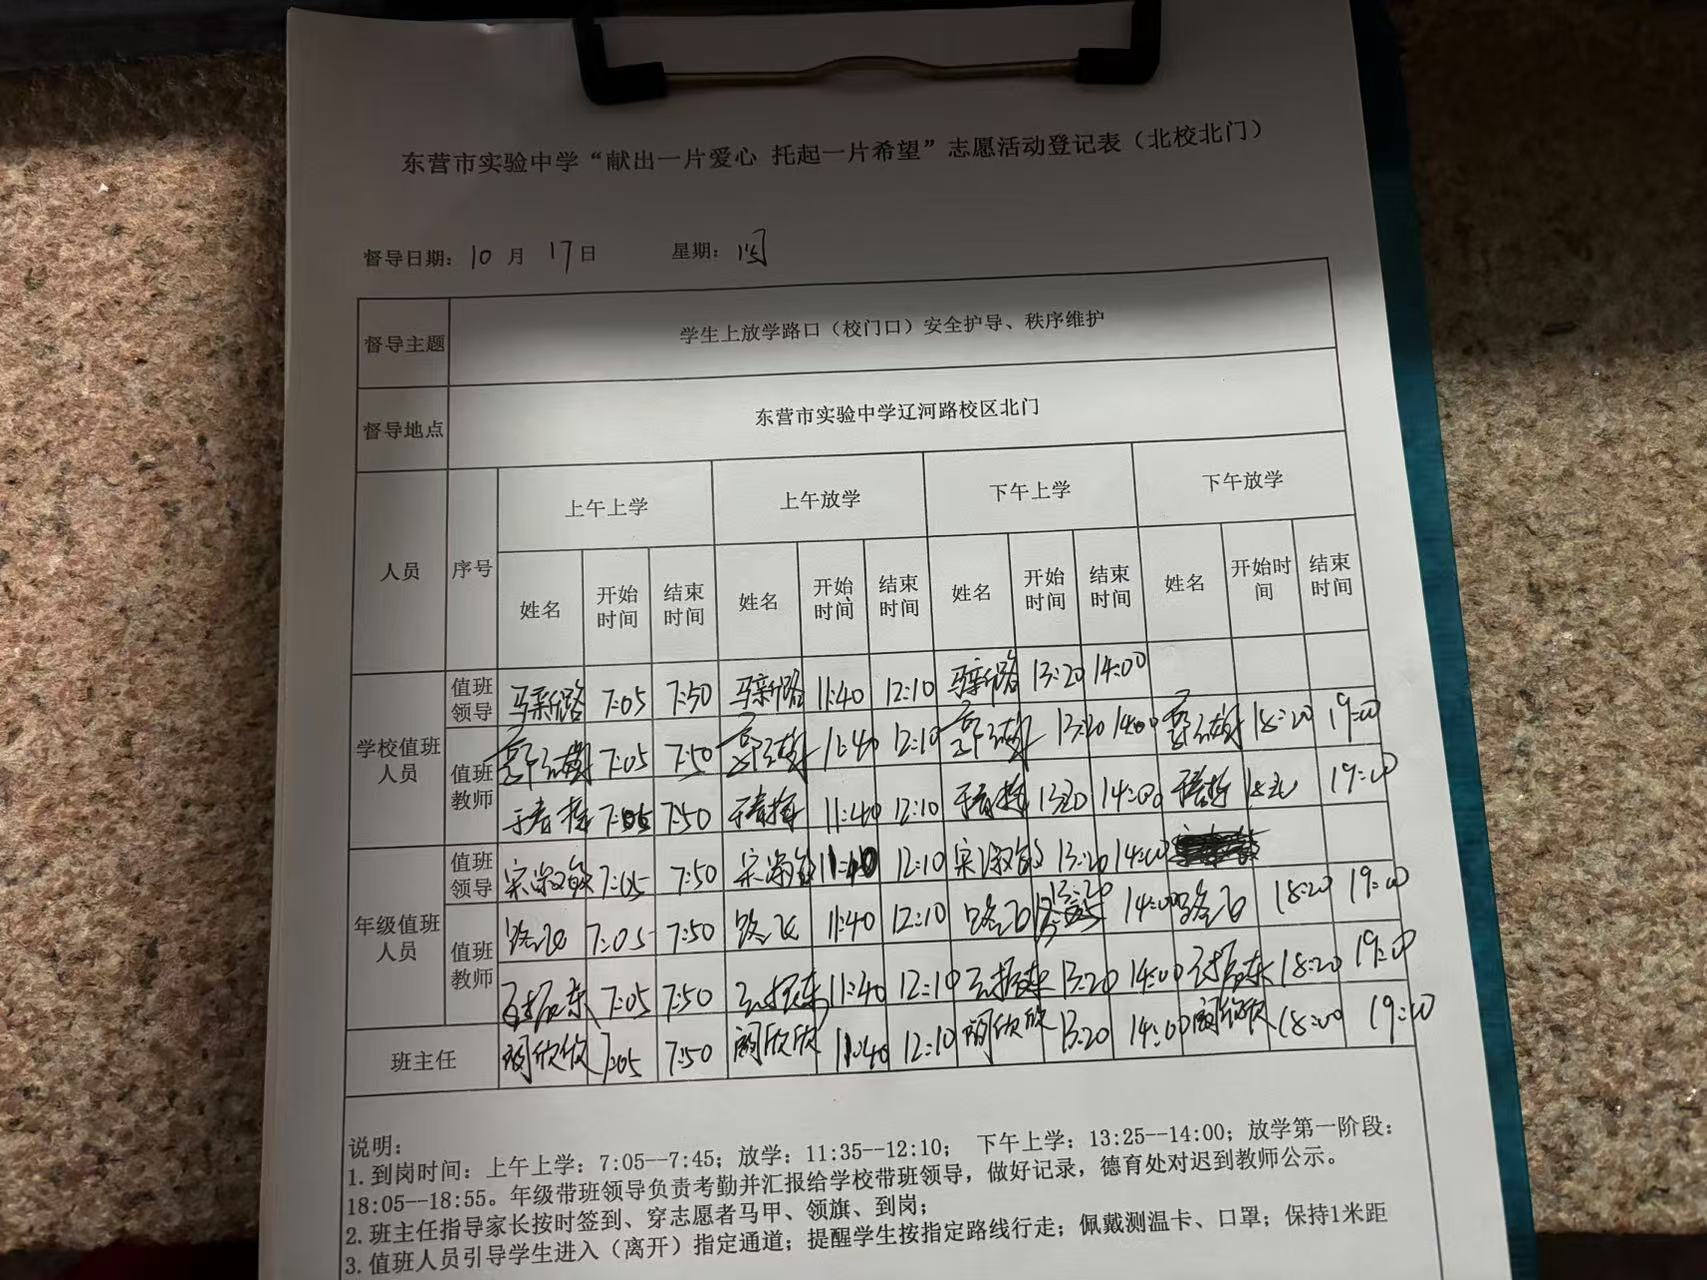 东营市实验中学“献出一片爱心 托起一片希望”志愿活动登记表（北校北门）
督导日期：10 月 17 日 星期：四
督导主题 学生上放学路口（校门口）安全护导、秩序维护
督导地点 东营市实验中学辽河路校区北门
人员 序号 上午上学 上午放学 下午上学 下午放学
姓名 开始时间 结束时间 姓名 开始时间 结束时间 姓名 开始时间 结束时间 姓名 开始时间 结束时间
学校值班人员 值班领导 马新路 7:05 7:50 马新路 11:40 12:10 马新路 13:20 14:00
值班教师 7:05 7:50 11:40 12:10 13:20 14:00 18:20 19:00
7:05 7:50 11:40 12:10 13:20 14:00 19:00
年级值班人员 值班领导 宋淑敏 7:05 7:50 宋淑敏 12:10 宋淑敏 13:20 14:00
值班教师 路飞 7:05 7:50 路飞 11:40 12:10 路飞 13:20 14:00 路飞 18:20 19:00
7:05 7:50 11:40 12:10 13:20 14:00 18:20 19:00
班主任 欣欣 7:05 7:50 欣欣 11:40 12:10 欣欣 13:20 14:00 欣欣 18:00 19:00
说明：
1.到岗时间：上午上学：7:05--7:45；放学：11:35--12:10； 下午上学：13:25--14:00；放学第一阶段：
18:05--18:55。年级带班领导负责考勤并汇报给学校带班领导，做好记录，德育处对迟到教师公示。
2.班主任指导家长按时签到、穿志愿者马甲、领旗、到岗；
3.值班人员引导学生进入（离开）指定通道；提醒学生按指定路线行走；佩戴测温卡、口罩；保持1米距